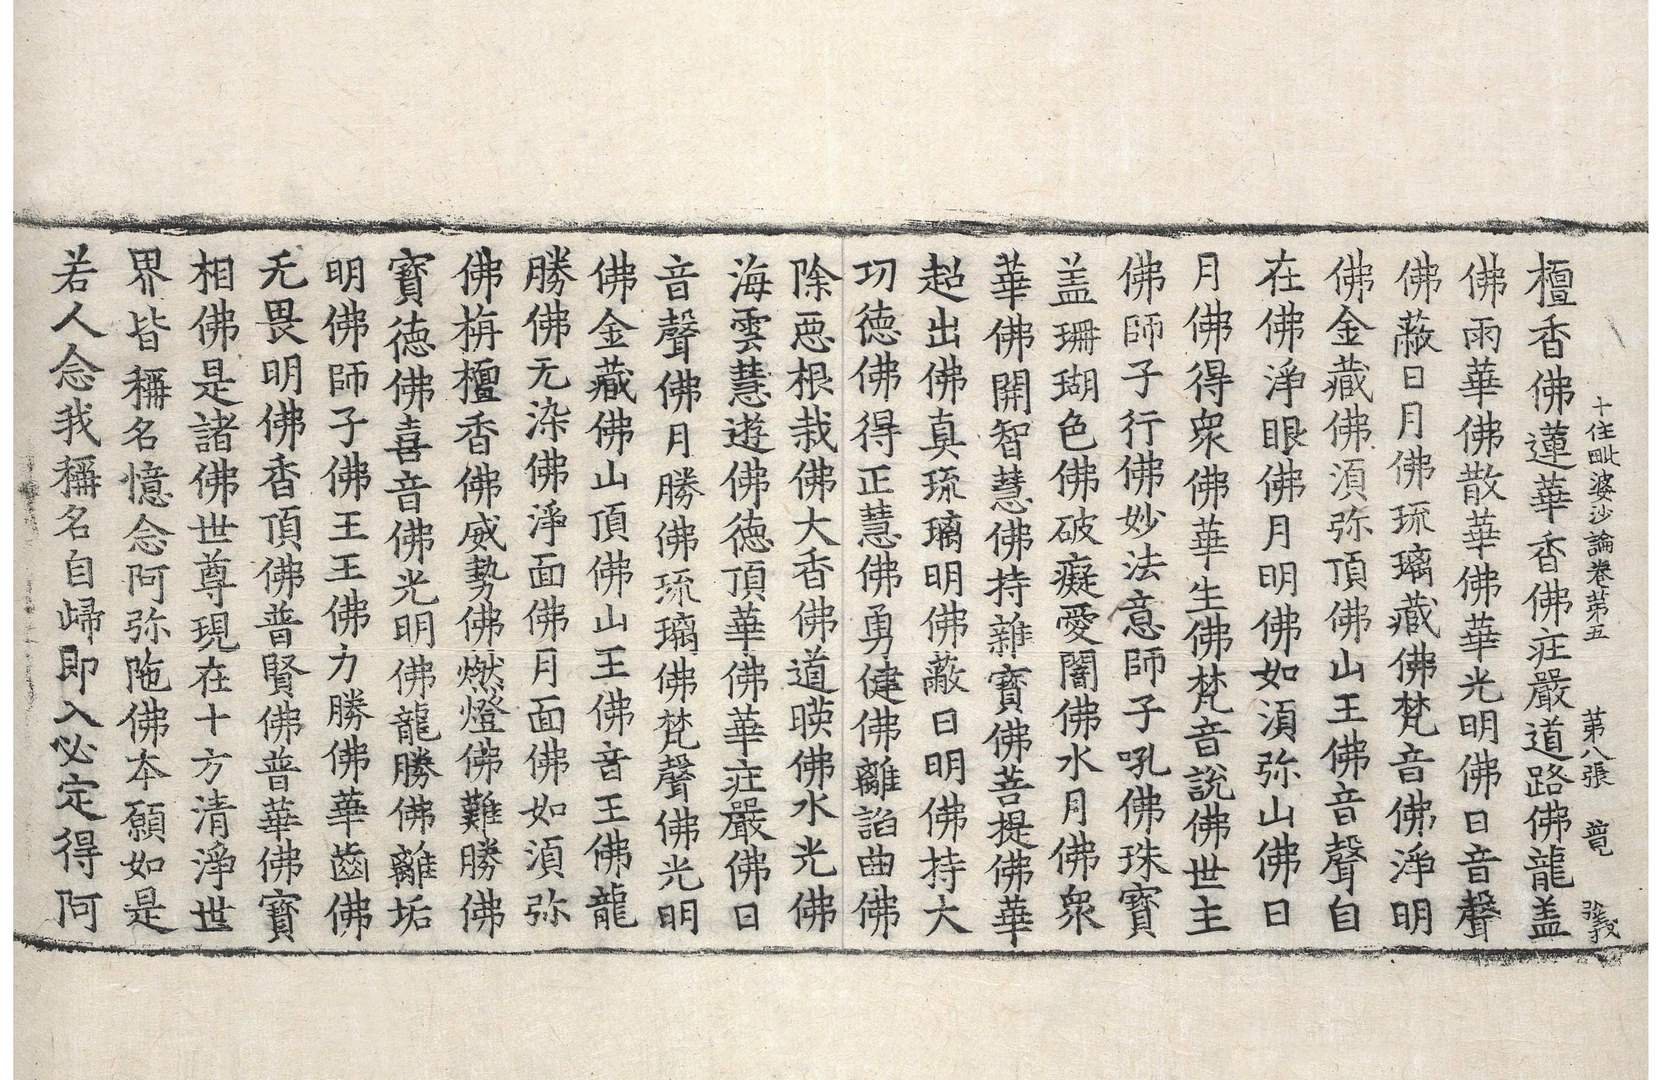 十住毗婆沙論卷第五　第八張　覓　張義
檀香佛蓮華香佛疰嚴道路佛龍盖
佛雨華佛散華佛華光明佛日音聲
佛蔽日月佛琉璃藏佛梵音佛淨明
佛金藏佛湏弥頂佛山王佛音聲自
在佛淨眼佛月明佛如湏弥山佛日
月佛得衆佛華生佛梵音說佛世主
佛師子行佛妙法意師子吼佛珠寶
盖珊瑚色佛破癡愛闇佛水月佛衆
華佛開智慧佛持雜寶佛菩提佛華
超出佛真琉璃明佛蔽日明佛持大
㓛德佛得正慧佛勇健佛離謟曲佛
除惡根栽佛大香佛道暎佛水光佛
海雲慧遊佛德頂華佛華疰嚴佛日
音聲佛月勝佛琉璃佛梵聲佛光明
佛金藏佛山頂佛山王佛音王佛龍
勝佛无染佛淨面佛月面佛如湏弥
佛栴檀香佛威勢佛燃燈佛難勝佛
寶德佛喜音佛光明佛龍勝佛離垢
明佛師子佛王王佛力勝佛華齒佛
无畏明佛香頂佛普賢佛普華佛寶
相佛是諸佛世尊現在十方清淨世
界皆稱名憶念阿弥陁佛本願如是
若人念我稱名自歸即入必定得阿